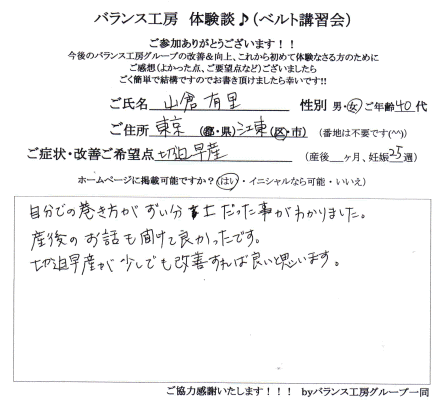 バランス工房 体験談♪(ベルト講習会)
ご参加ありがとうございます!!
今後のバランス工房グループの改善&向上、これから初めて体験なさる方のために
ご感想(よかった点、ご要望点など)ございましたら
ごく簡単で結構ですのでお書き頂けましたら幸いです!!
ご氏名 山倉有里 性別 男・女 ご年齢40代
ご住所 東京(都・県)江東(区・市) (番地は不要です(^^))
ご症状・改善ご希望点 切迫早産 (産後__ヶ月、妊娠25週)
ホームページに掲載可能ですか?(はい・イニシャルなら可能・いいえ)
自分での巻き方がずい分 だった事がわかりました。
産後のお話も聞けて良かったです。
切迫早産が少しでも改善すれば良いと思います。
ご協力感謝いたします!!! byバランス工房グループ一同